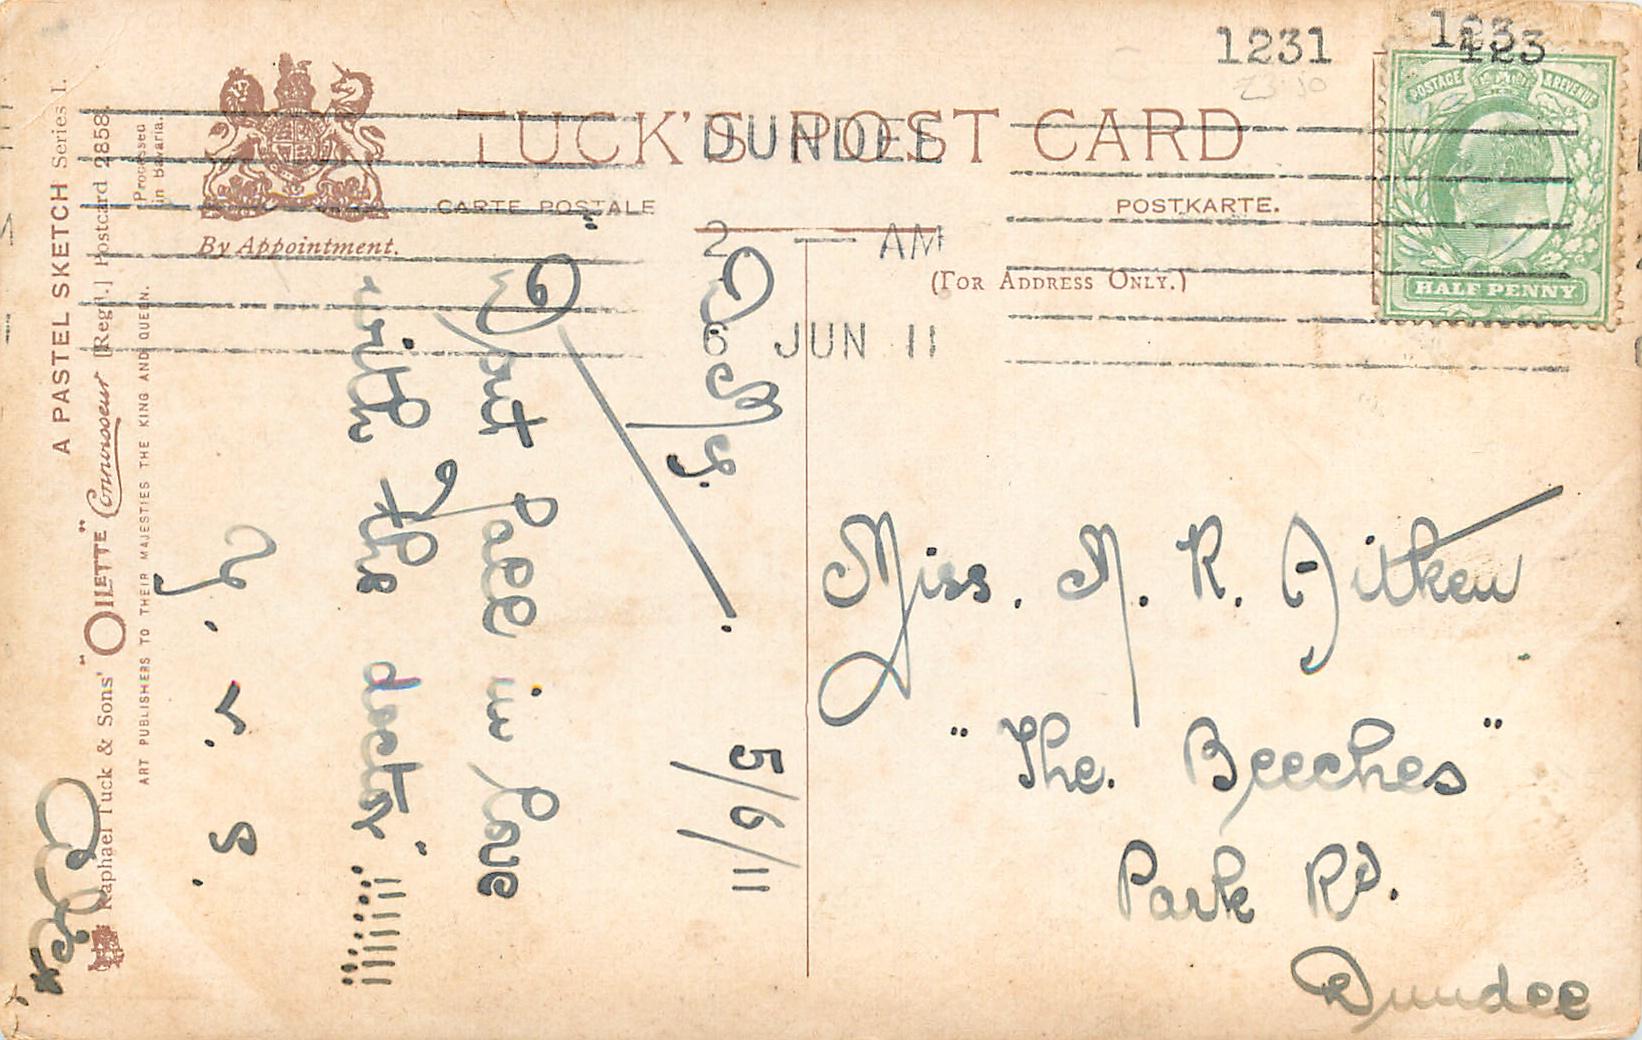 1231
123
123
23·10
POSTAGE & REVENUE
HALF PENNY
TUCK'S POST CARD
CARTE POSTALE
POSTKARTE.
By Appointment.
(FOR ADDRESS ONLY.)
DUNDEE
2 — AM
6 JUN 11
A PASTEL SKETCH Series I.
Raphael Tuck & Sons' "OILETTE" Connoisseur [Regd.] Postcard 2858.
ART PUBLISHERS TO THEIR MAJESTIES THE KING AND QUEEN.
Processed
in Bavaria.
5/6/11
Don't fall in love
with the doctor!!!!!!!
Y. v. S.
Miss. M. R. Aitken
"The. Beeches"
Park Rd.
Dundee